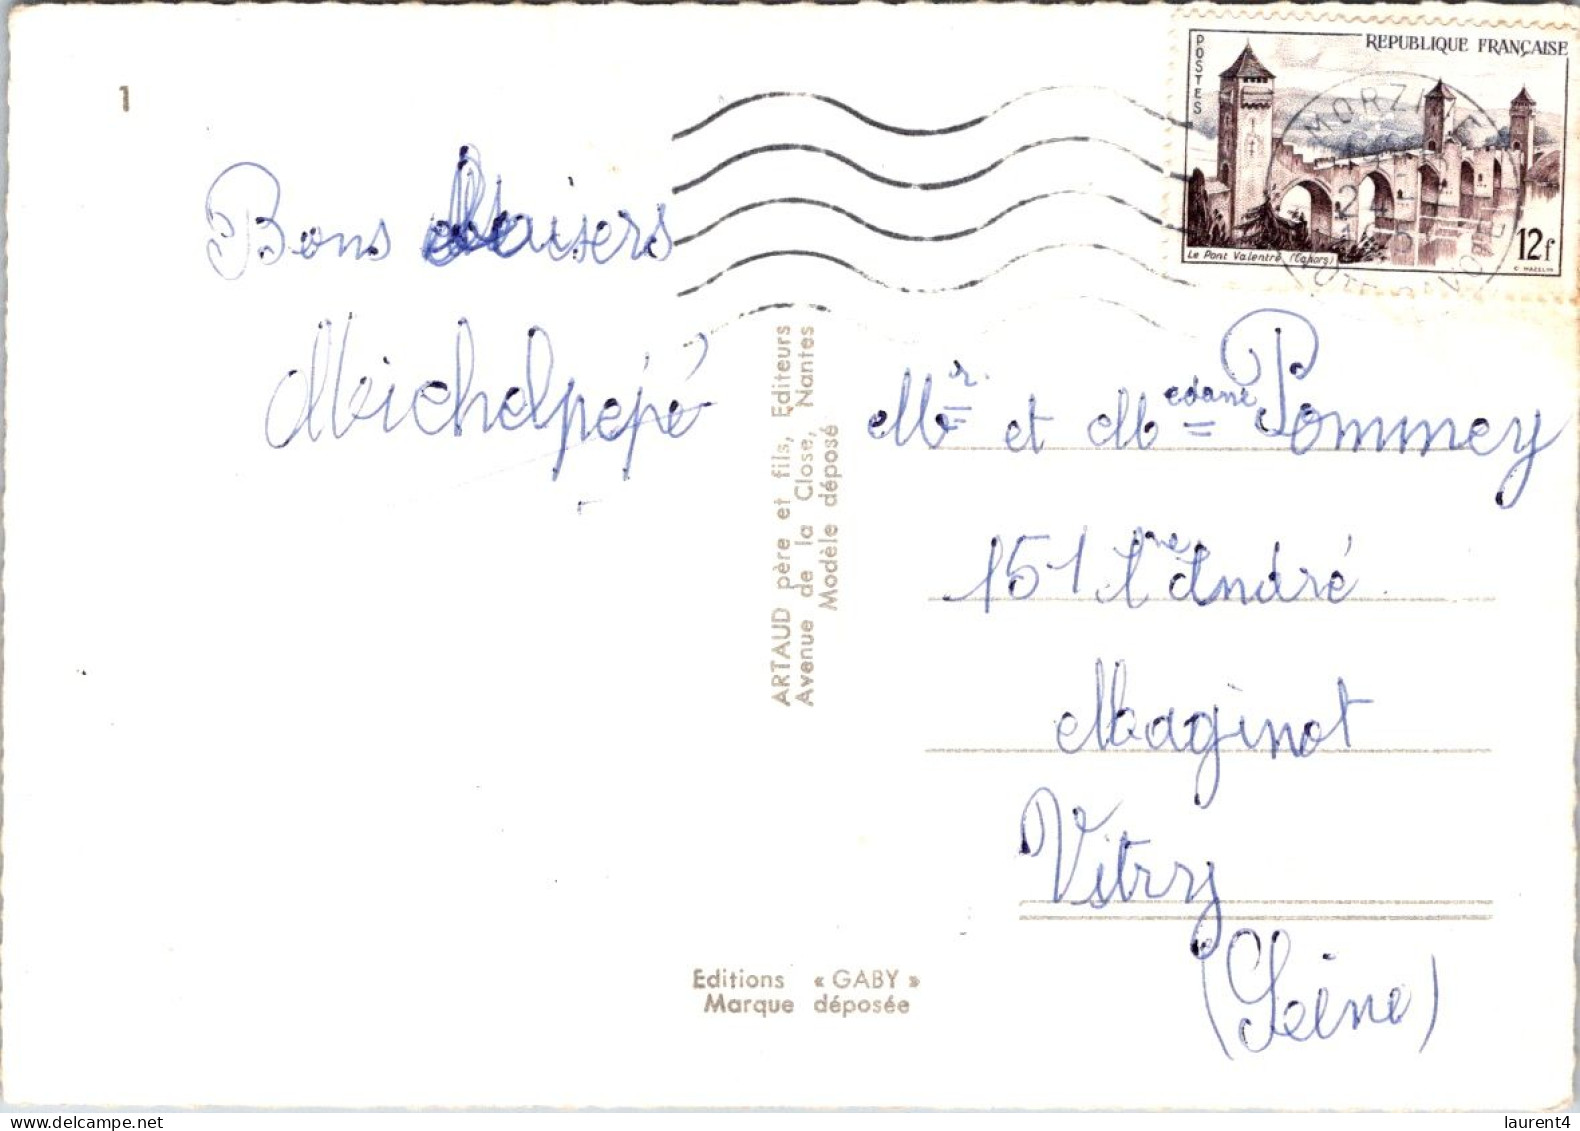 1
POSTES
REPUBLIQUE FRANÇAISE
MORZINE
HTE SAVOIE
Le Pont Valentré (Cahors)
12f
C. MAZELIN
Bons baisers
Michelpépé
ARTAUD père et fils, Editeurs
Avenue de la Close, Nantes
Modèle déposé
Mr. et Medame Pommey
151 André
Maginot
Vitry
(Seine)
Editions « GABY »
Marque déposée
laurent4